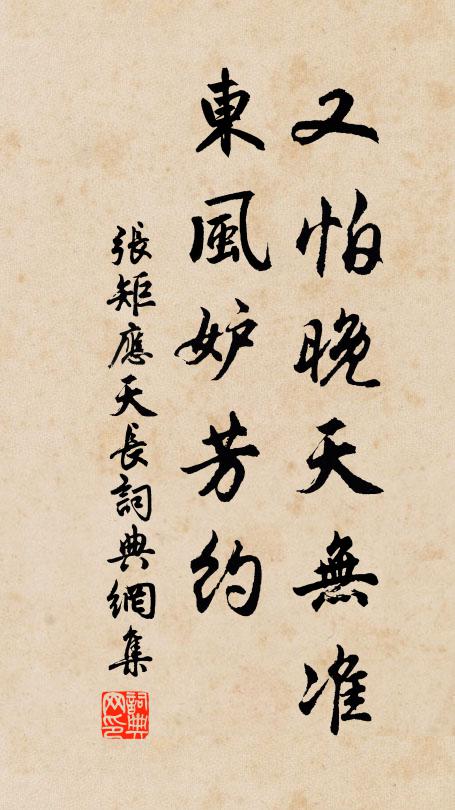 又怕晚天無准
東風妒芳約
張矩應天長詞典網集
詞典網印